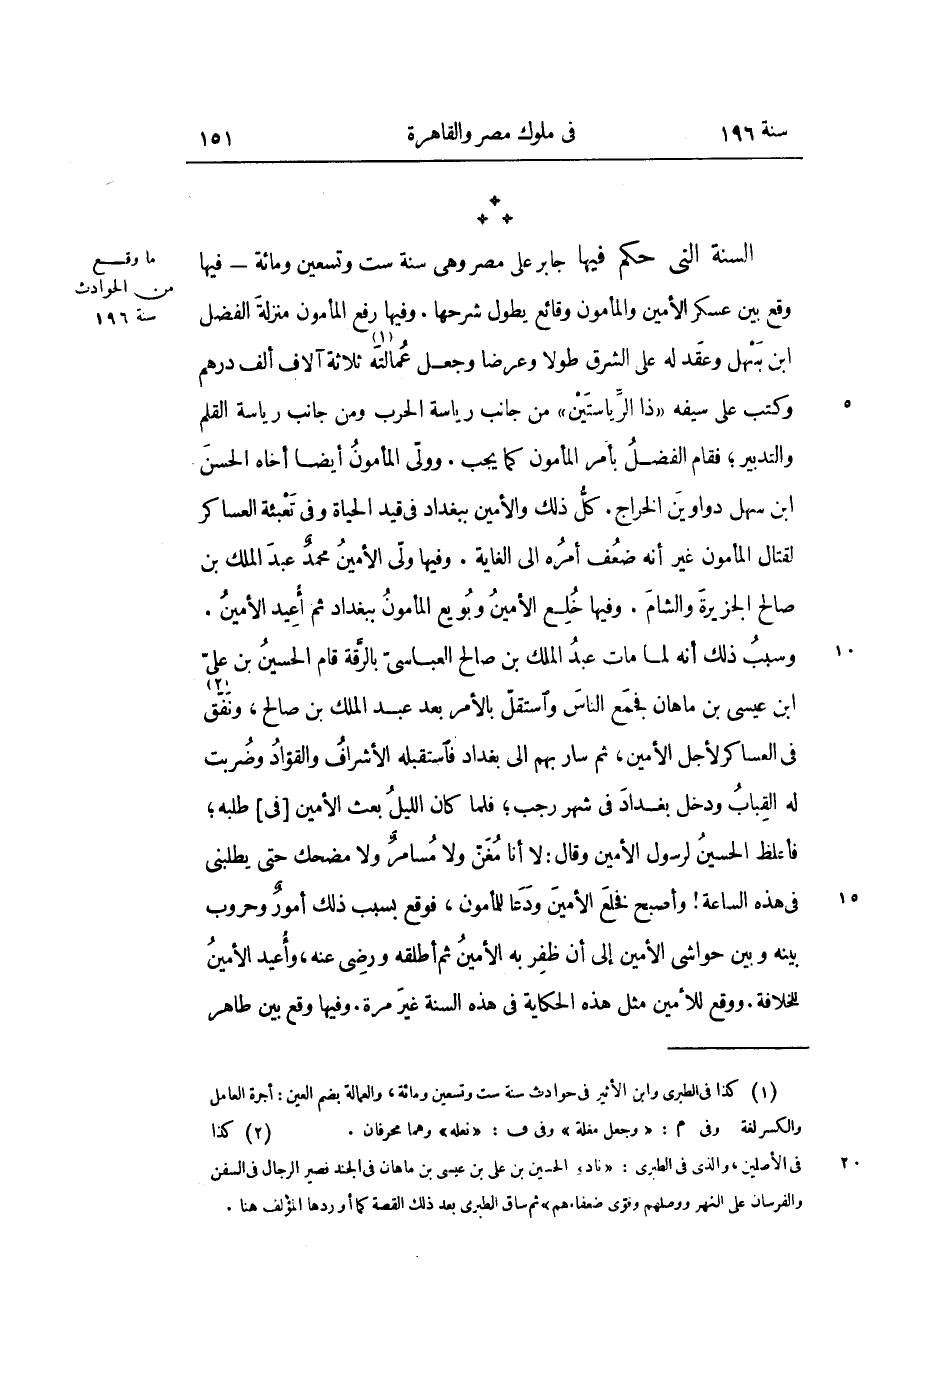 سنة ١٩٦ فى ملوك مصر والقاهرة ١٥١
السنة التى حكم فيها جابر على مصر وهى سنة ست وتسعين ومائة — فيها
ما وقع
من الحوادث
سنة ١٩٦
وقع بين عسكر الأمين والمأمون وقائع يطول شرحها . وفيها رفع المأمون منزلةَ الفضل
ابن سَهْل وعقَد له على الشرق طولا وعرضا وجعل عُمالتَه (١) ثلاثة آلاف ألف درهم
وكتب على سيفه «ذا الرِّياستَيْن» من جانب رياسة الحرب ومن جانب رياسة القلم ٥
والتدبير؛ فقام الفضلُ بأمر المأمون كما يجب . وولّى المأمونُ أيضا أخاه الحسنَ
ابن سهل دواوينَ الخراج. كلُّ ذلك والأمين ببغداد فى قيد الحياة وفى تَعْبئة العساكر
لقتال المأمون غير أنه ضعُف أمرُه الى الغاية . وفيها ولّى الأمينُ محمدٌ عبدَ الملك بن
صالح الجزيرةَ والشامَ . وفيها خُلِع الأمينُ وبُويع المأمونُ ببغداد ثم أُعيد الأمينُ .
وسببُ ذلك أنه لما مات عبدُ الملك بن صالح العباسىّ بالرَّقة قام الحسينُ بن علىّ ١٠
ابن عيسى بن ماهان فجمَع الناسَ وآستقلّ بالأمر بعد عبد الملك بن صالح، ونَفَّق (٢)
فى العساكر لأجل الأمين، ثم سار بهم الى بغداد فآستقبله الأشرافُ والقوّادُ وضُربت
له القِبابُ ودخل بغدادَ فى شهر رجب؛ فلما كان الليلُ بعث الأمين [فى] طلبه؛
فأغلظ الحسينُ لرسول الأمين وقال: لا أنا مُغَنّ ولا مُسامرٌ ولا مضحك حتى يطلبنى
فى هذه الساعة! وأصبح فخلَع الأمينَ ودَعَا للمأمون، فوقع بسبب ذلك أمورٌ وحروب ١٥
بينه وبين حواشى الأمين إلى أن ظفِر به الأمينُ ثم أطلقه ورضِى عنه، وأُعيد الأمينُ
للخلافة. ووقع للأمين مثل هذه الحكاية فى هذه السنة غيرَ مرة. وفيها وقع بين طاهر
(١) كذا فى الطبرى وابن الأثير فى حوادث سنة ست وتسعين ومائة، والعمالة بضم العين: أجرة العامل
والكسر لغة وفى م : «وجعل مغلة» وفى ف : «نعله» وهما محرفان . (٢) كذا
فى الأصلين، والذى فى الطبرى : «نادى الحسين بن على بن عيسى بن ماهان فى الجند فصير الرجال فى السفن ٢٠
والفرسان على الظهر ووصلهم وقوى ضعفاءهم» ثم ساق الطبرى بعد ذلك القصة كما أوردها المؤلف هنا .